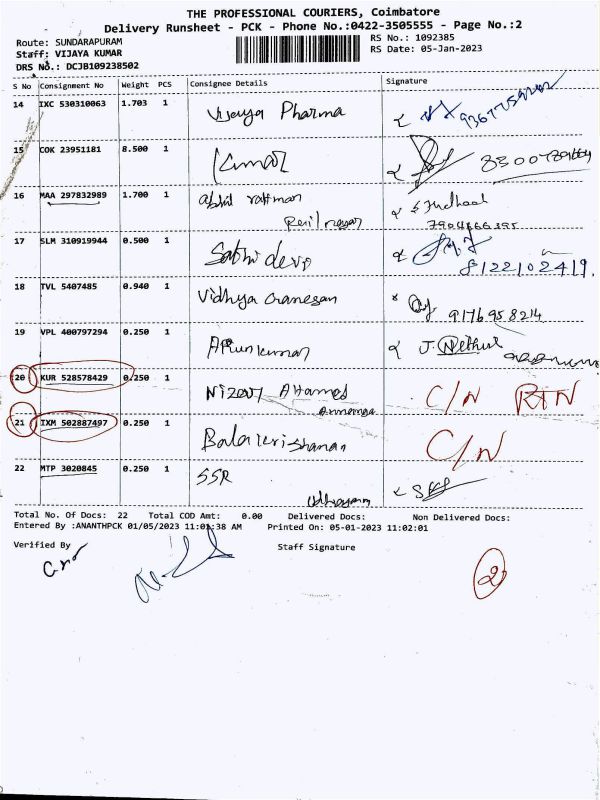 THE PROFESSIONAL COURIERS, Coimbatore
Delivery Runsheet - PCK - Phone No.:0422-3505555 - Page No.:2
Route: SUNDARAPURAM
RS No.: 1092385
Staff: VIJAYA KUMAR
RS Date: 05-Jan-2023
DRS No.: DCJB109238502
S No Consignment No Weight PCS Consignee Details Signature
14 IXC 530310063 1.703 1 Vijaya Pharma
15 COK 23951181 8.500 1 Kumar
16 MAA 297832989 1.700 1 Abdul rahman
17 SLM 310919944 0.500 1 Sathi devi 8122102419.
18 TVL 5407485 0.940 1 Vidhya Ganesan 9176958214
19 VPL 400797294 0.250 1 Arunkumar J. Nethul
20 KUR 528578429 0.250 1 Nizam Ahamed C/N RTN
21 IXM 502887497 0.250 1 Balakrishanan C/N
22 MTP 3020845 0.250 1 SSR
Total No. Of Docs: 22 Total COD Amt: 0.00 Delivered Docs: Non Delivered Docs:
Entered By :ANANTHPCK 01/05/2023 11:01:38 AM Printed On: 05-01-2023 11:02:01
Verified By Staff Signature
2